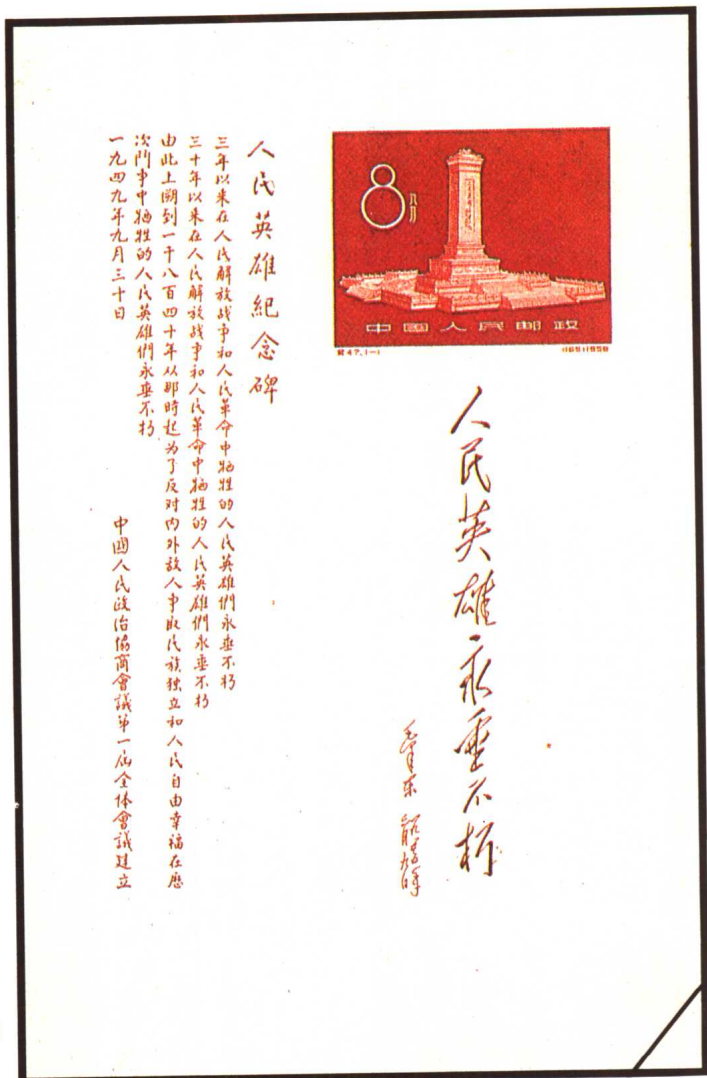 8分
中国人民邮政
紀47.1—1
(165)1958
人民英雄永垂不朽
毛泽东
人民英雄紀念碑
三年以来在人民解放战争和人民革命中牺牲的人民英雄們永垂不朽
三十年以来在人民解放战争和人民革命中牺牲的人民英雄們永垂不朽
由此上溯到一千八百四十年从那時起为了反对内外敌人争取民族独立和人民自由幸福在歷
次鬥争中牺牲的人民英雄們永垂不朽
一九四九年九月三十日
中國人民政治協商會議第一届全体會議建立